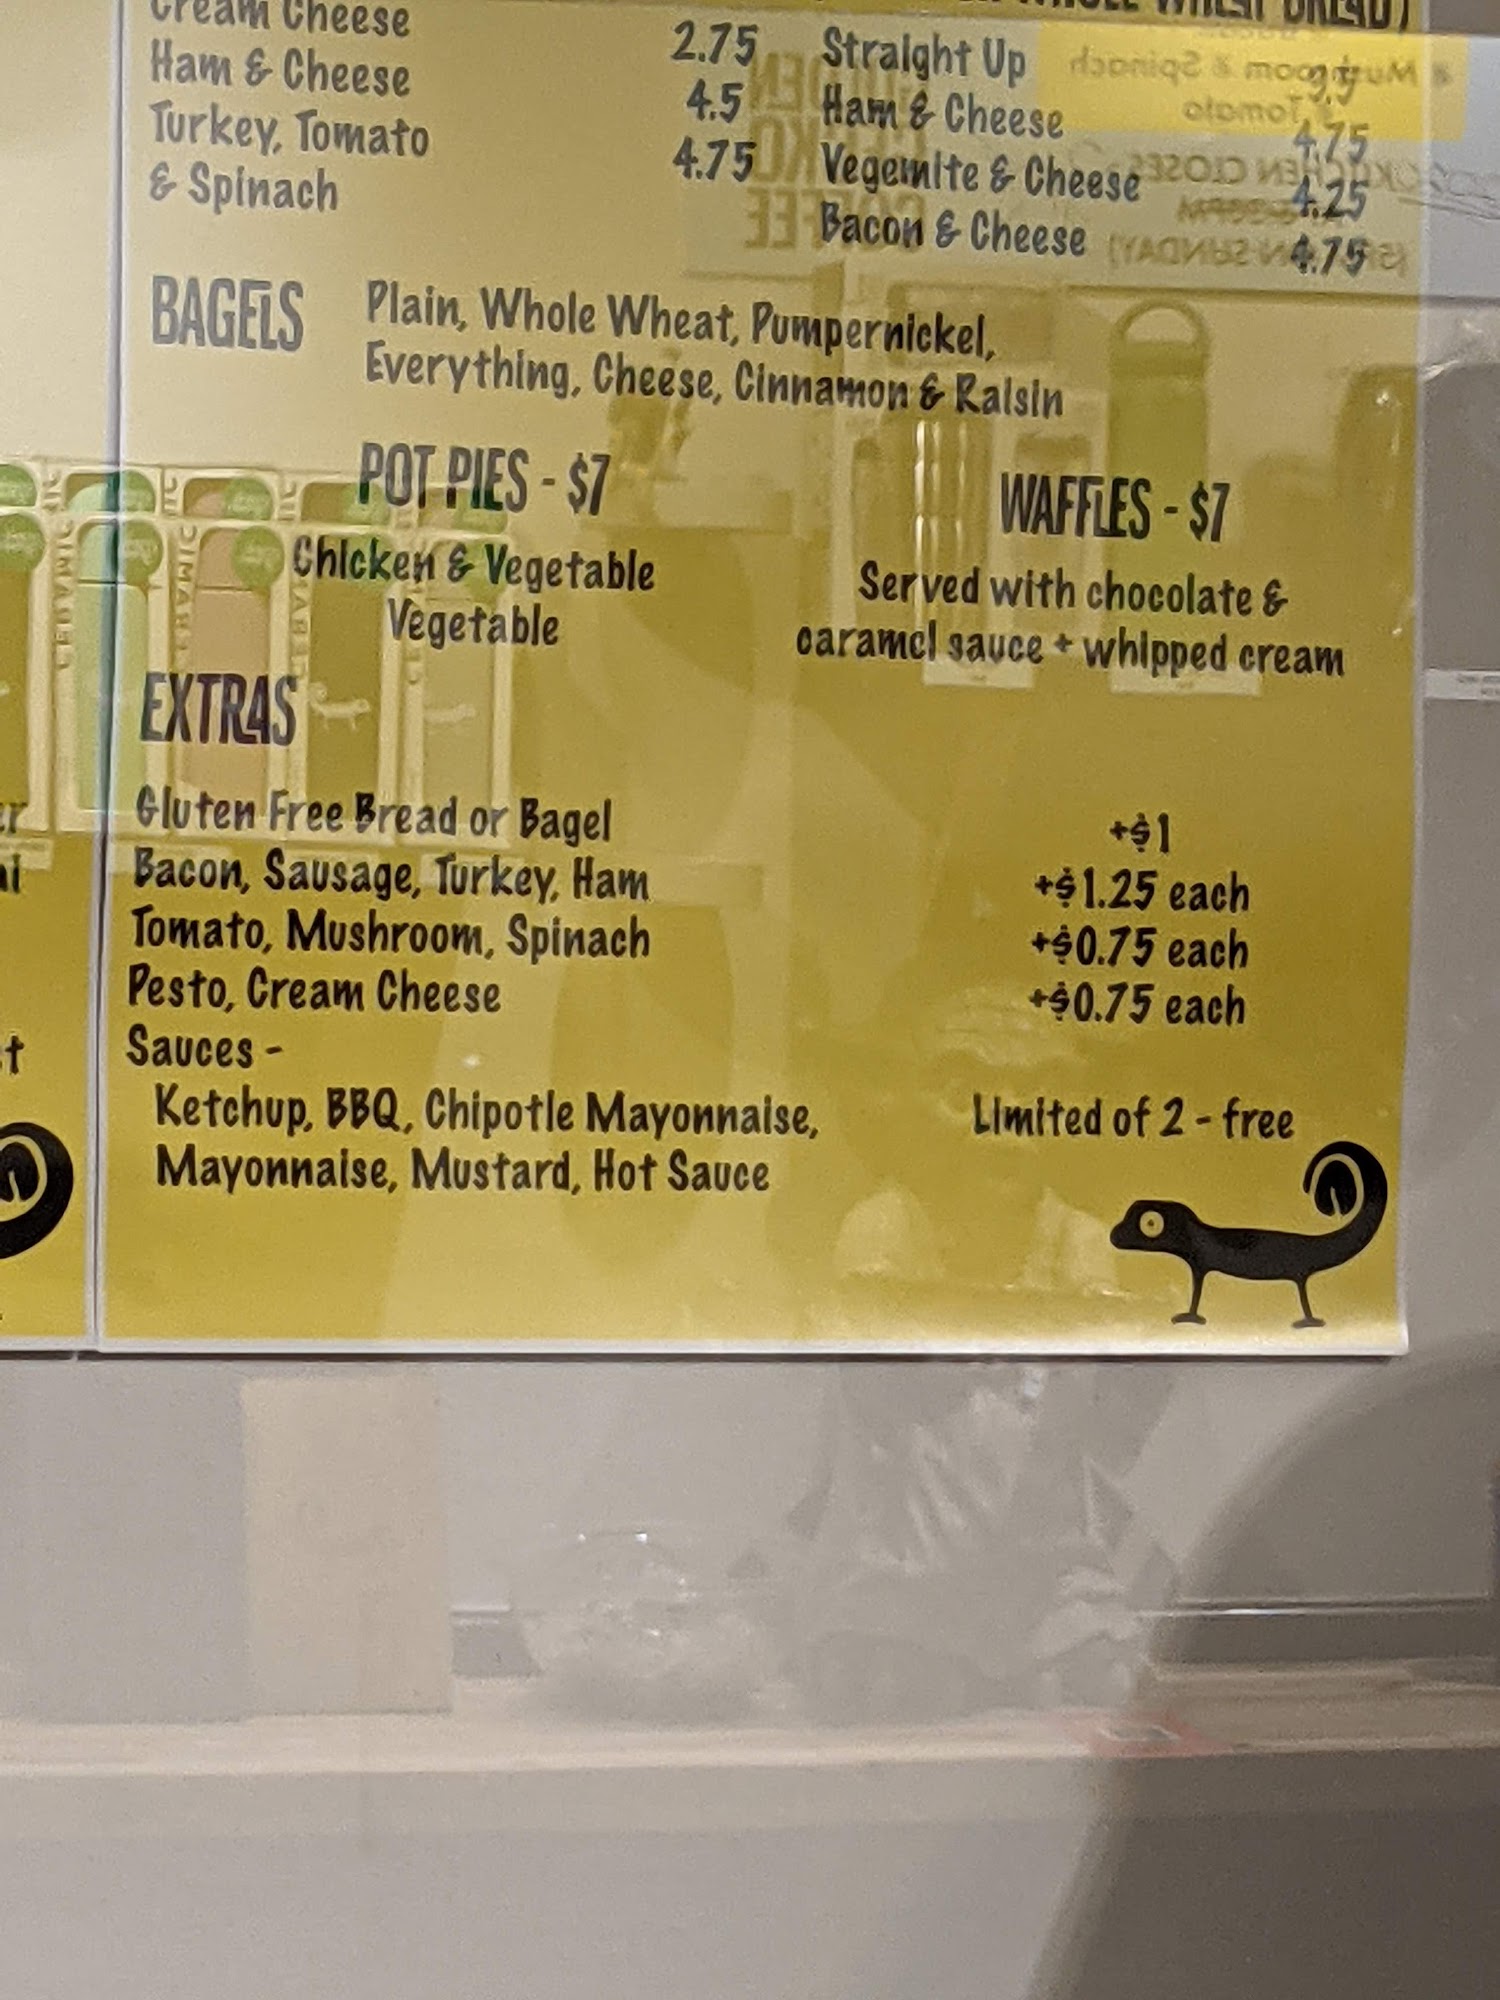 Cream Cheese 2.75
Ham & Cheese 4.5
Turkey, Tomato 4.75
& Spinach
WHOLE WHEAT BREAD)
Straight Up 3.5
Ham & Cheese 4.75
Vegemite & Cheese 4.25
Bacon & Cheese 4.75
BAGELS
Plain, Whole Wheat, Pumpernickel,
Everything, Cheese, Cinnamon & Raisin
POT PIES - $7
Chicken & Vegetable
Vegetable
WAFFLES - $7
Served with chocolate &
caramel sauce + whipped cream
EXTRAS
Gluten Free Bread or Bagel +$1
Bacon, Sausage, Turkey, Ham +$1.25 each
Tomato, Mushroom, Spinach +$0.75 each
Pesto, Cream Cheese +$0.75 each
Sauces -
Ketchup, BBQ, Chipotle Mayonnaise, Limited of 2 - free
Mayonnaise, Mustard, Hot Sauce